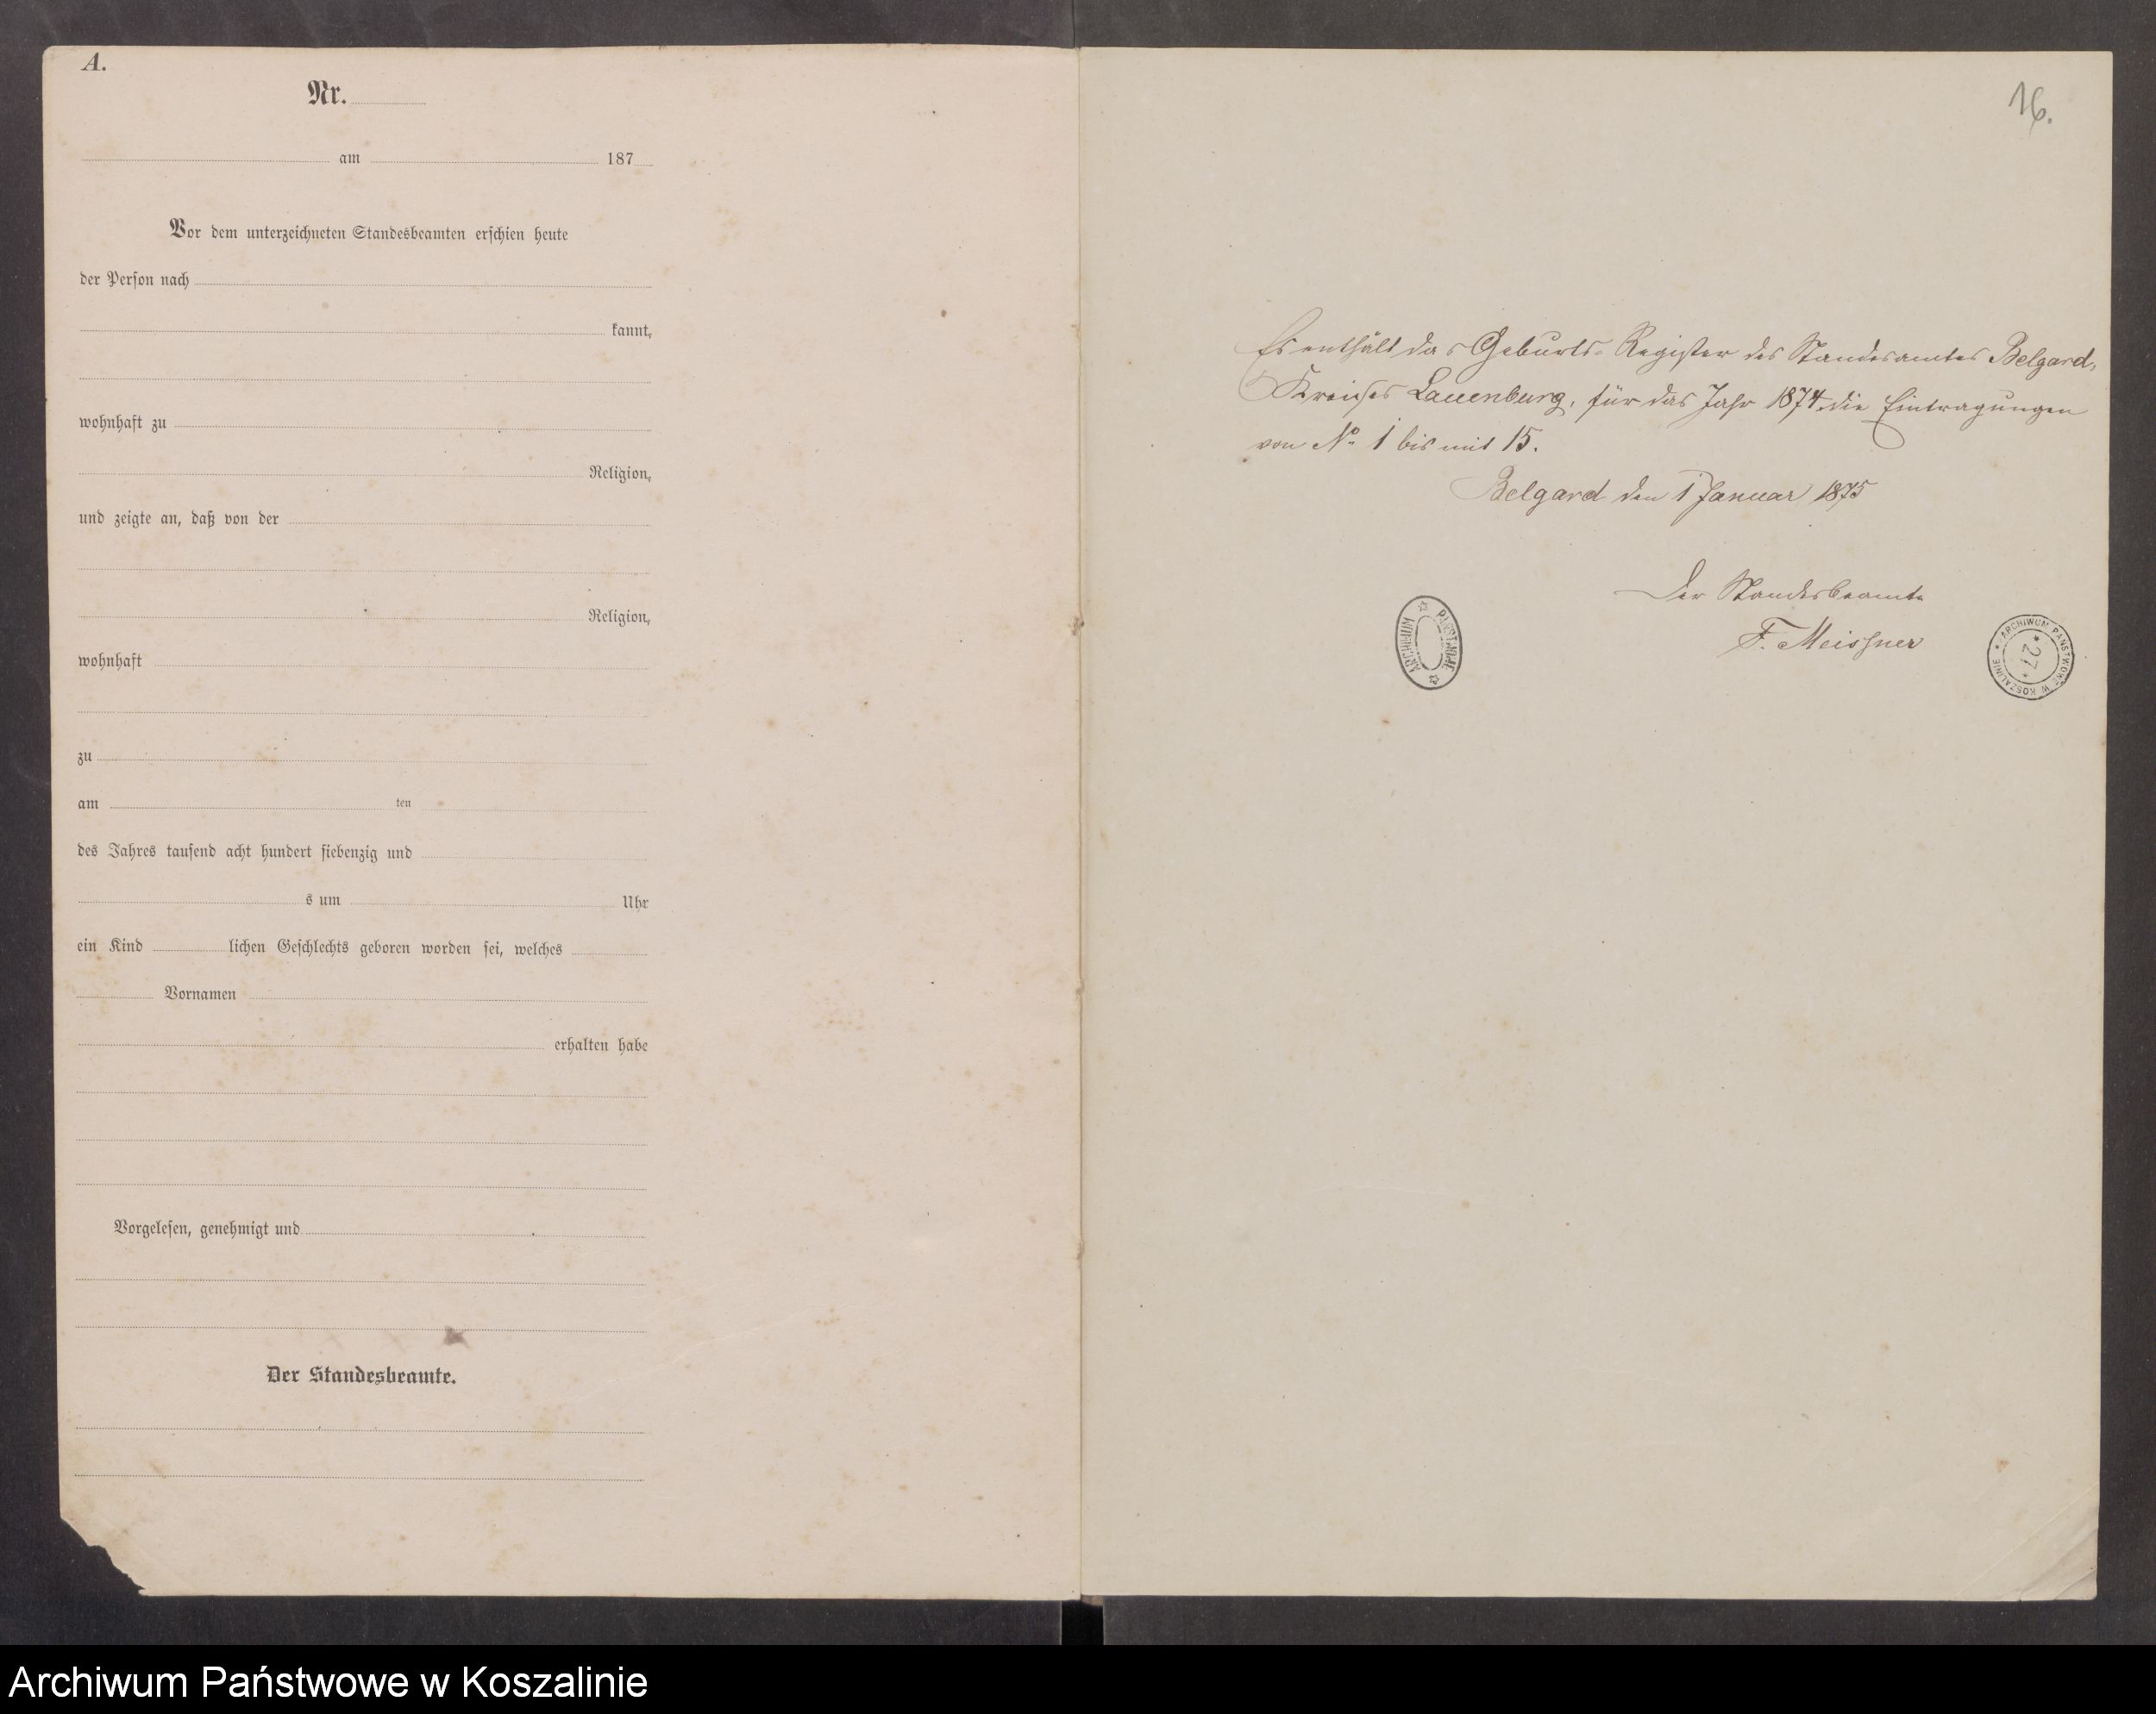 A.
Nr.
am 187
Vor dem unterzeichneten Standesbeamten erschien heute
der Person nach
kannt,
wohnhaft zu
Religion,
und zeigte an, daß von der
Religion,
wohnhaft
zu
am ten
des Jahres tausend acht hundert siebenzig und
s um Uhr
ein Kind lichen Geschlechts geboren worden sei, welches
Vornamen
erhalten habe
Vorgelesen, genehmigt und
Der Standesbeamte.
16.
Es enthält das Geburts-Register des Standesamtes Belgard,
Kreises Lauenburg, für das Jahr 1874 die Eintragungen
von No 1 bis mit 15.
Belgard den 1 Januar 1875
Der Standesbeamte
F. Meissner
ARCHIWUM PAŃSTWOWE
ARCHIWUM PAŃSTWOWE W KOSZALINIE
* 27 *
Archiwum Państwowe w Koszalinie